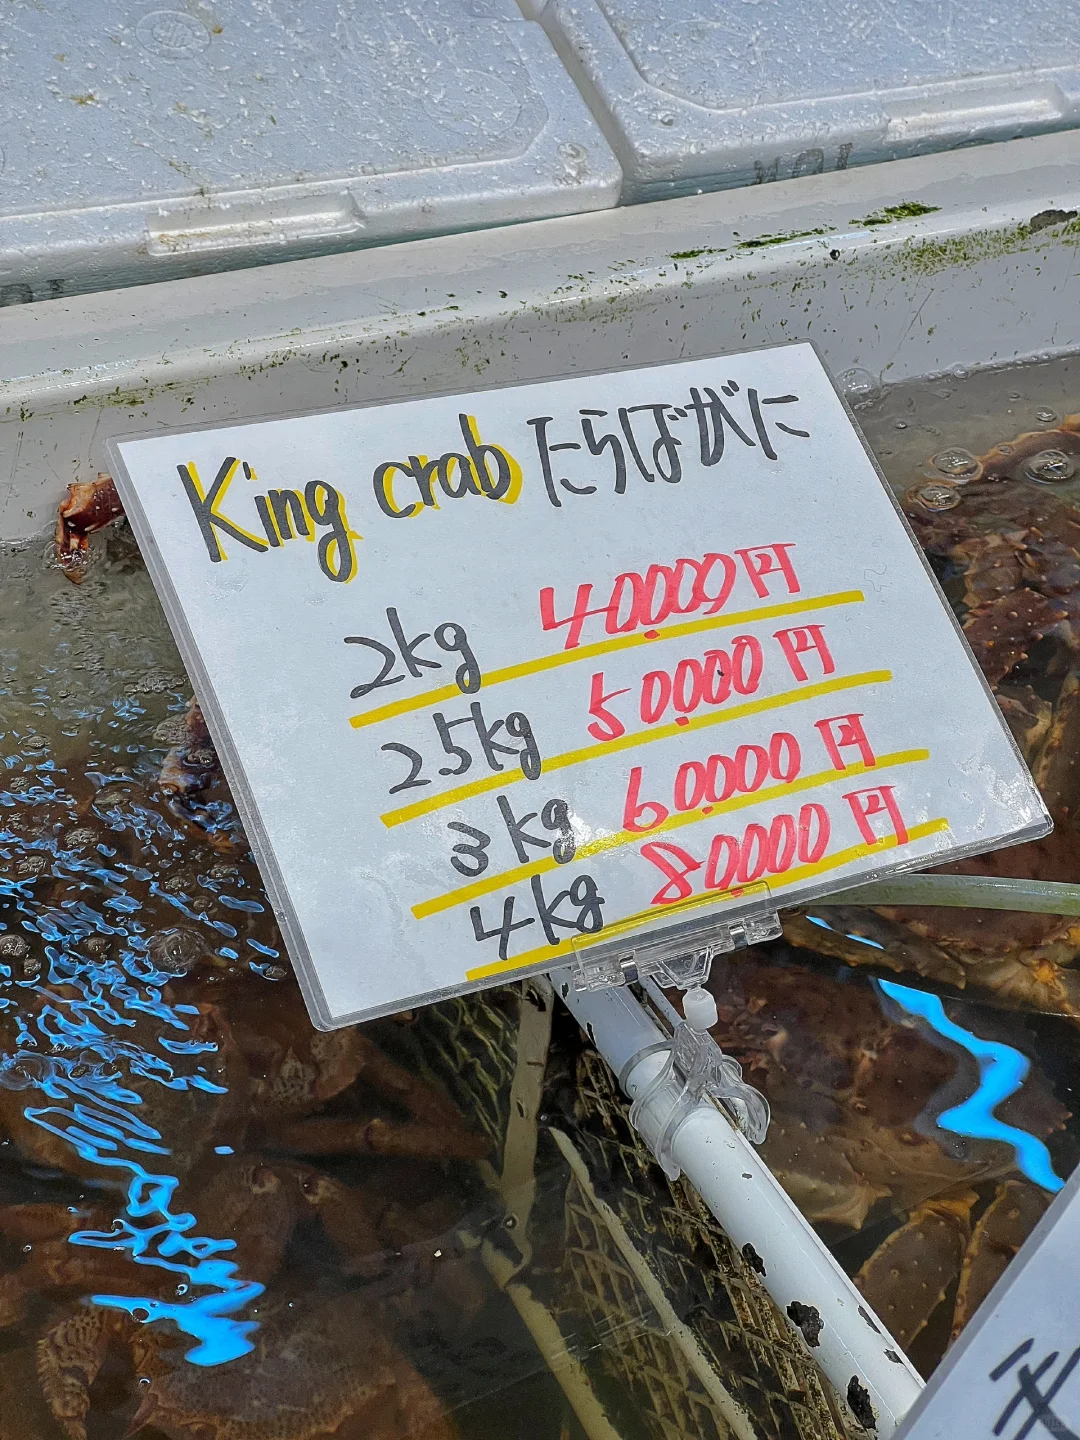 King crab たらばがに
2kg 40.000円
2.5kg 50.000円
3kg 60.000円
4kg 80.000円